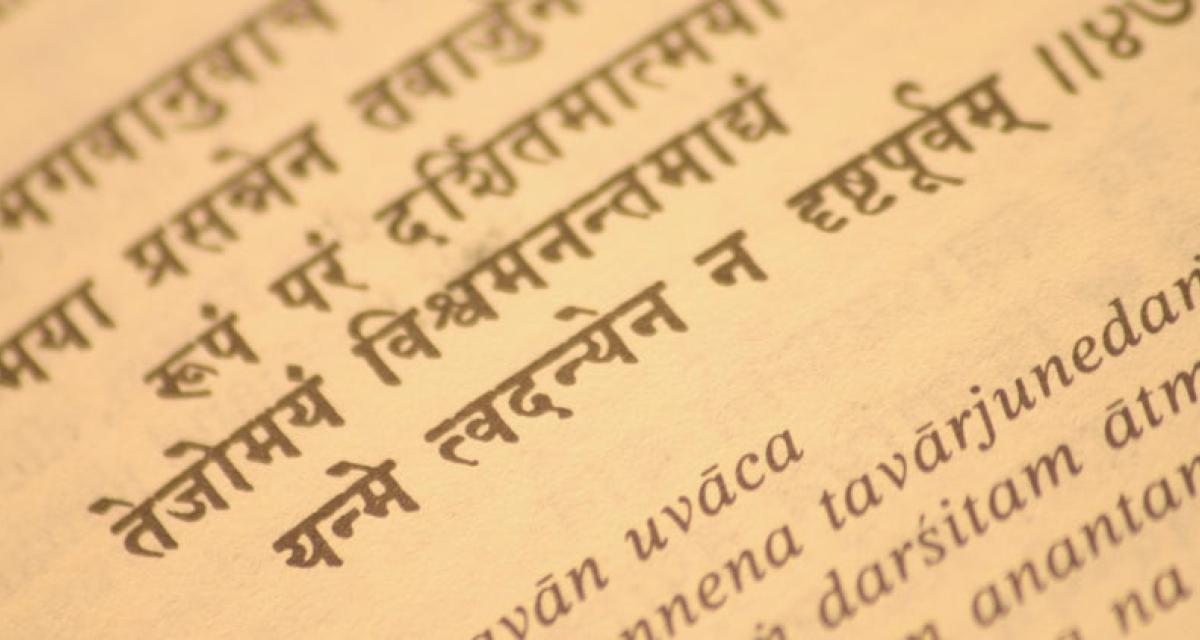 भगवानुवाच
मया प्रसन्नेन तवार्जुन
रूपं परं दर्शितमात्मया
तेजोमयं विश्वमनन्तमाद्यं
यन्मे त्वदन्येन न दृष्टपूर्वम् ॥४७
avān uvāca
nnena tavārjunedaṁ
darśitam ātm
anantam
na